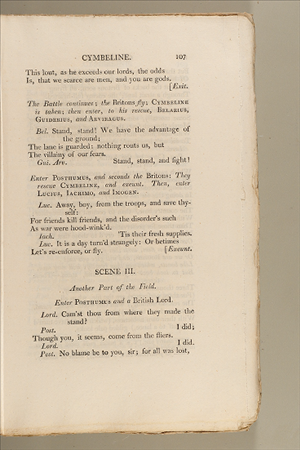 CYMBELINE. 107
This lout, as he exceeds our lords, the odds
Is, that we scarce are men, and you are gods.
[Exit.
The Battle continues; the Britons fly; CYMBELINE
is taken; then enter, to his rescue, BELARIUS,
GUIDERIUS, and ARVIRAGUS.
Bel. Stand, stand! We have the advantage of
the ground;
The lane is guarded: nothing routs us, but
The villainy of our fears.
Gui. Arv. Stand, stand, and fight!
Enter POSTHUMUS, and seconds the Britons: They
rescue CYMBELINE, and exeunt. Then, enter
LUCIUS, IACHIMO, and IMOGEN.
Luc. Away, boy, from the troops, and save thy-
self:
For friends kill friends, and the disorder's such
As war were hood-wink'd.
Iach. 'Tis their fresh supplies.
Luc. It is a day turn'd strangely: Or betimes
Let's re-enforce, or fly. [Exeunt.
SCENE III.
Another Part of the Field.
Enter POSTHUMUS and a British Lord.
Lord. Cam'st thou from where they made the
stand?
Post. I did;
Though you, it seems, come from the fliers.
Lord. I did.
Post. No blame be to you, sir; for all was lost,